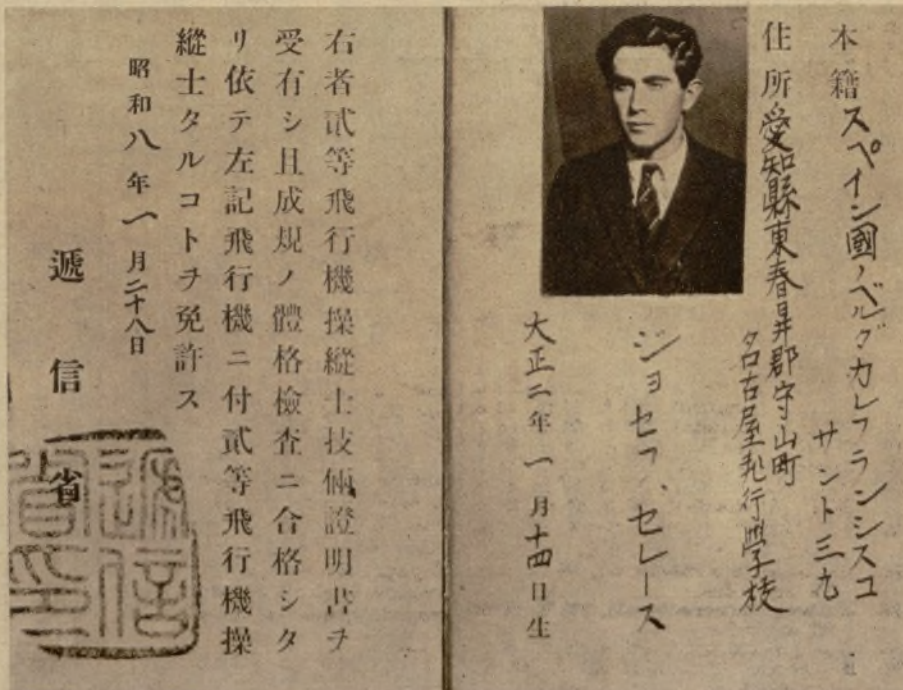 本籍スペイン國ノベルダカレフランシスコ
サント三九
住所愛知縣東春井郡守山町
名古屋飛行學校
ジョセフ、セレース
大正二年一月十四日生
右者貳等飛行機操縱士技倆證明書ヲ
受有シ且成規ノ體格檢査ニ合格シタ
リ依テ左記飛行機ニ付貳等飛行機操
縱士タルコトヲ免許ス
昭和八年一月二十八日
遞信省
遞信
省印